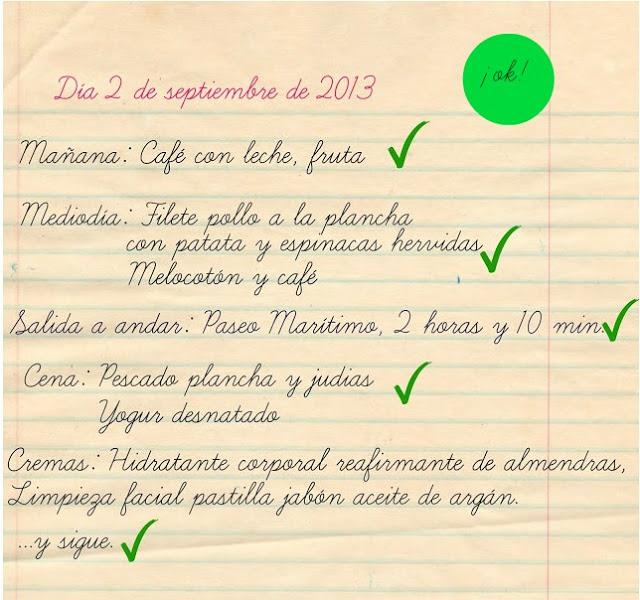 Día 2 de septiembre de 2013
¡ok!
Mañana: Café con leche, fruta
Mediodía: Filete pollo a la plancha
con patata y espinacas hervidas
Melocotón y café
Salida a andar: Paseo Marítimo, 2 horas y 10 min.
Cena: Pescado plancha y judias
Yogur desnatado
Cremas: Hidratante corporal reafirmante de almendras,
Limpieza facial pastilla jabón aceite de argán.
...y sigue.